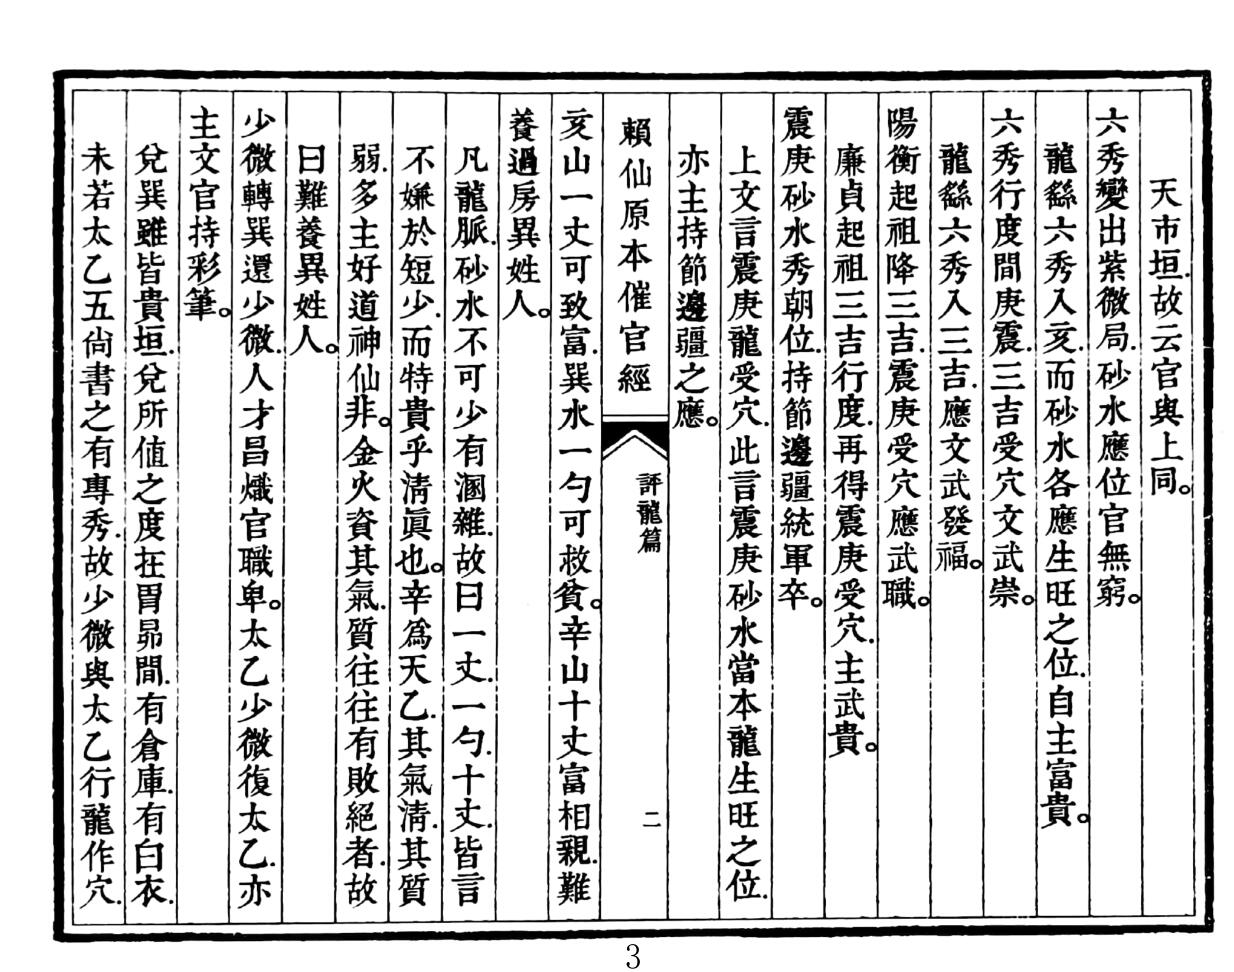 天市垣.故云官與上同。
六秀變出紫微局.砂水應位官無窮。
龍繇六秀入亥.而砂水各應生旺之位.自主富貴。
六秀行度間庚震.三吉受穴文武崇。
龍繇六秀入三吉.應文武發福。
陽衡起祖降三吉.震庚受穴應武職。
廉貞起祖三吉行度.再得震庚受穴.主武貴。
震庚砂水秀朝位.持節邊疆統軍卒。
上文言震庚龍受穴.此言震庚砂水當本龍生旺之位.
亦主持節邊疆之應。
賴仙原本催官經
評龍篇
二
亥山一丈可致富.巽水一勺可救貧。辛山十丈富相親.難
養過房異姓人。
凡龍脈.砂水不可少有溷雜.故曰一丈.一勺.十丈.皆言
不嫌於短少.而特貴乎清眞也。辛爲天乙.其氣清.其質
弱.多主好道神仙非。金火資其氣.質往往有敗絕者.故
曰難養異姓人。
少微轉巽還少微.人才昌熾官職卑。太乙少微復太乙.亦
主文官持彩筆。
兌巽雖皆貴垣.兌所値之度在胃昴間.有倉庫.有白衣.
未若太乙五尙書之有專秀.故少微與太乙行龍作穴.
3